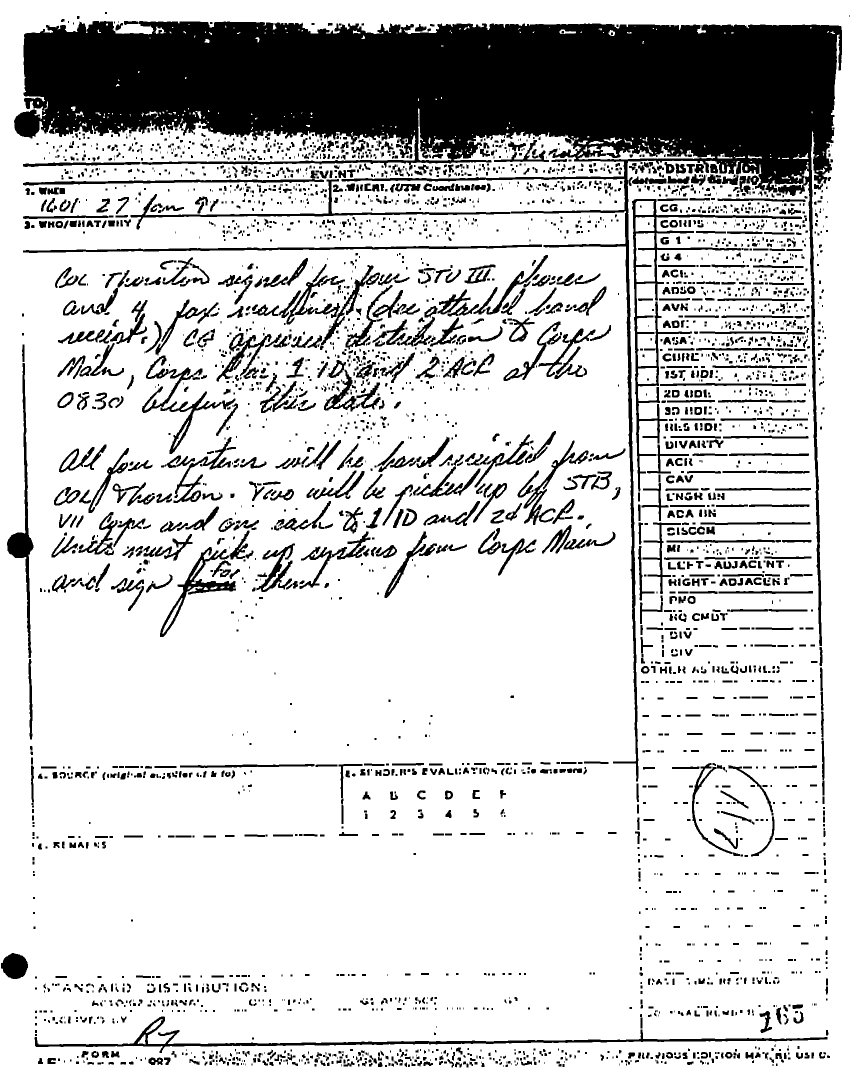 TO:
Thornton
EVENT
DISTRIBUTION
1. WHEN
2. WHERE (UTM Coordinates)
1601 27 Jan 91
3. WHO/WHAT/WHY
CG
CORPS
G 1
G 4
ADSO
AVN
1ST BDE
2D BDE
3D BDE
RES BDE
DIVARTY
ACR
CAV
ENGR BN
ADA BN
DISCOM
MI
LEFT - ADJACENT
RIGHT - ADJACENT
PMO
HQ CMDT
DIV
DIV
OTHER AS REQUIRED
COL Thornton signed for four STU III phones
and 4 fax machines. (See attached hand
receipt.) CG approved distribution to Corps
Main, Corps Rear, 1 ID, and 2 ACR at the
0830 briefing this date.
All four systems will be hand receipted from
COL Thornton. Two will be picked up by STB,
VII Corps and one each to 1 ID and 2d ACR.
Units must pick up systems from Corps Main
and sign from for them.
4. SOURCE (original supplier of info)
5. SENDER'S EVALUATION (Circle answers)
A B C D E F
1 2 3 4 5 6
6. REMARKS
211
STANDARD DISTRIBUTION:
DATE TIME RECEIVED
RECEIVED BY
JOURNAL NUMBER 165
FORM
PREVIOUS EDITION MAY BE USED.